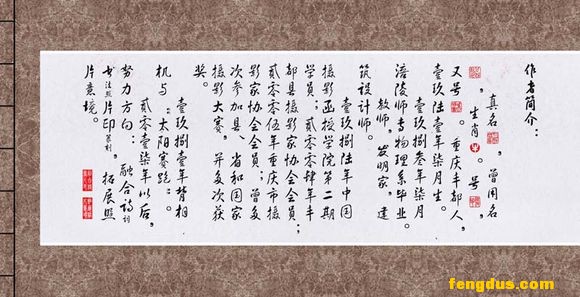 作者简介：
真名，曾用名
，生肖。号，
又号。重庆丰都人，
壹玖陆壹年柒月生。
壹玖捌叁年柒月
涪陵师专物理系毕业。
教师，发明家，建
筑设计师。
壹玖捌陆年中国
摄影函授学院第二期
学员；贰零零肆年丰
都县摄影家协会会员；
贰零零伍年重庆市摄
影家协会会员；曾多
次参加县、省和国家
摄影大赛，并多次获
奖。
壹玖捌壹年背相
机与“太阳赛跑”。
贰零壹柒年以后，
努力方向：融合诗词
书法照片印篆刻，拓展照
片意境。
fengdus.com